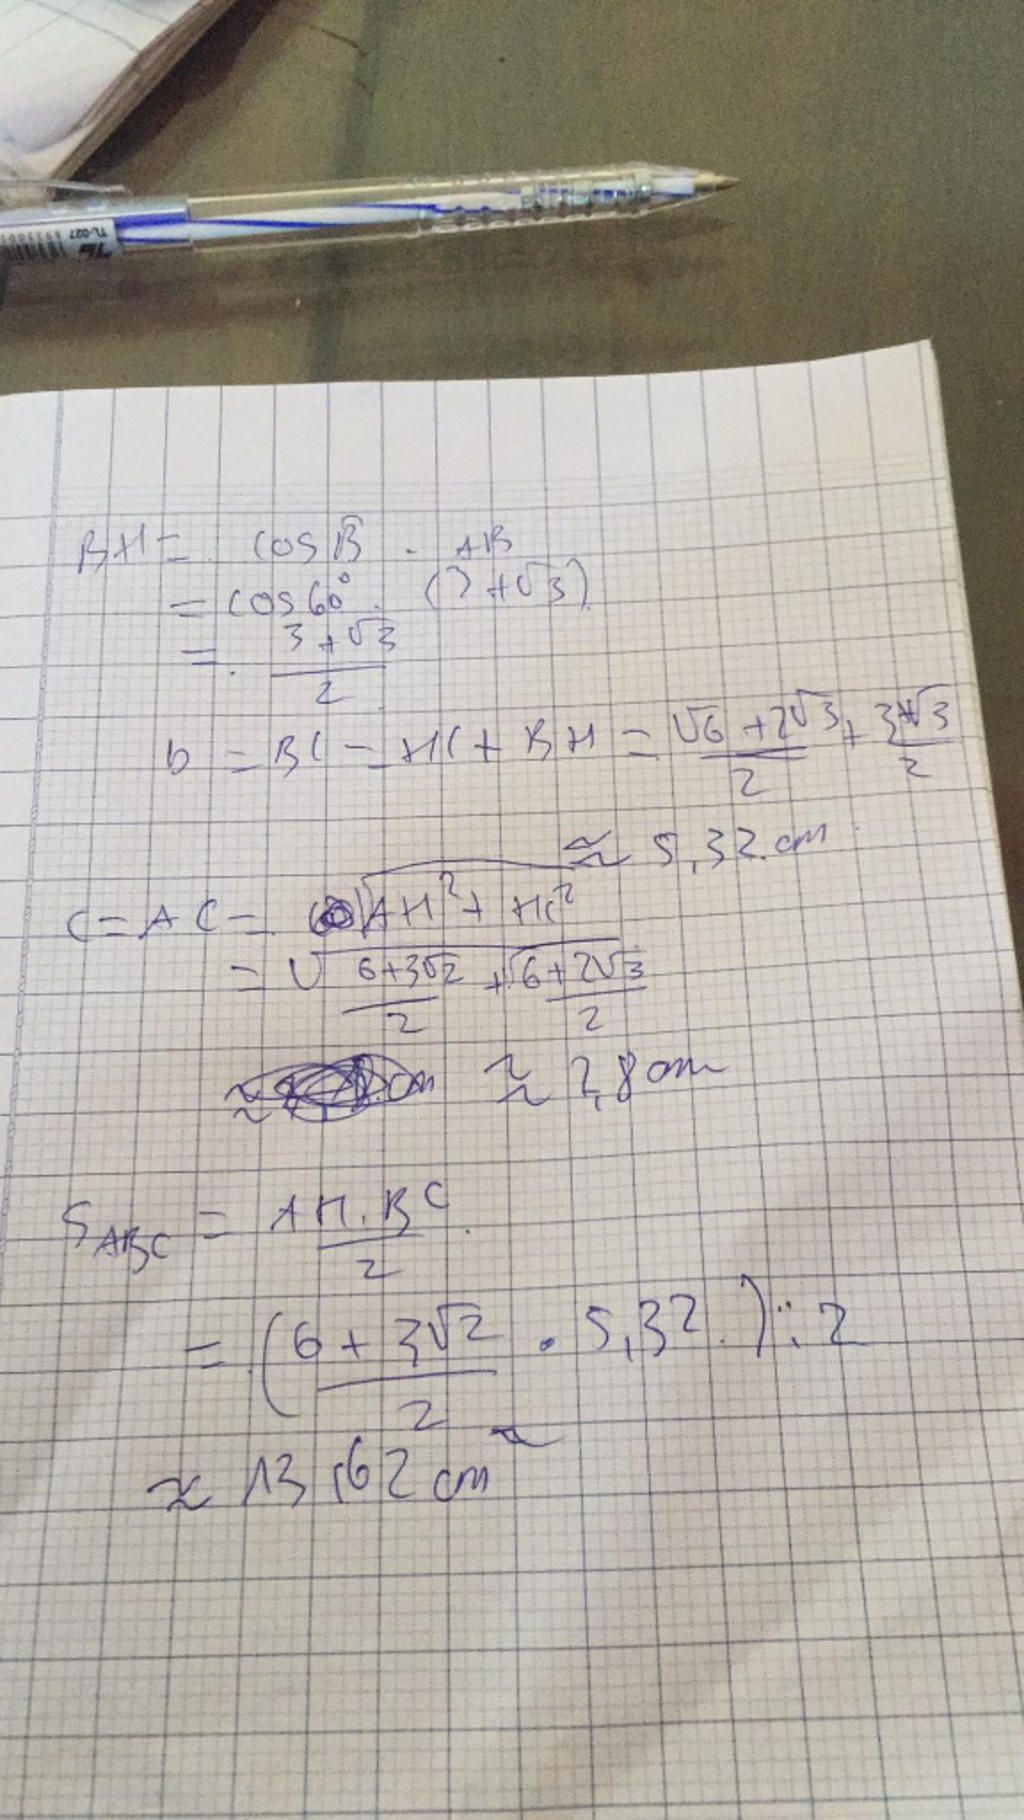 TL-027
BH = cos B . AB
= cos 60° . (3 + √3)
= 3 + √3 / 2
b = BC = HC + BH = √6 + 2√3 / 2 + 3 + √3 / 2
≈ 5,32 cm
C = AC = √AH² + HC²
= √ 6 + 3√2 / 2 + √6 + 2√3 / 2
≈ 2,8 cm
S ABC = AH . BC / 2
= ( 6 + 3√2 / 2 . 5,32 ) : 2
≈ 13,62 cm